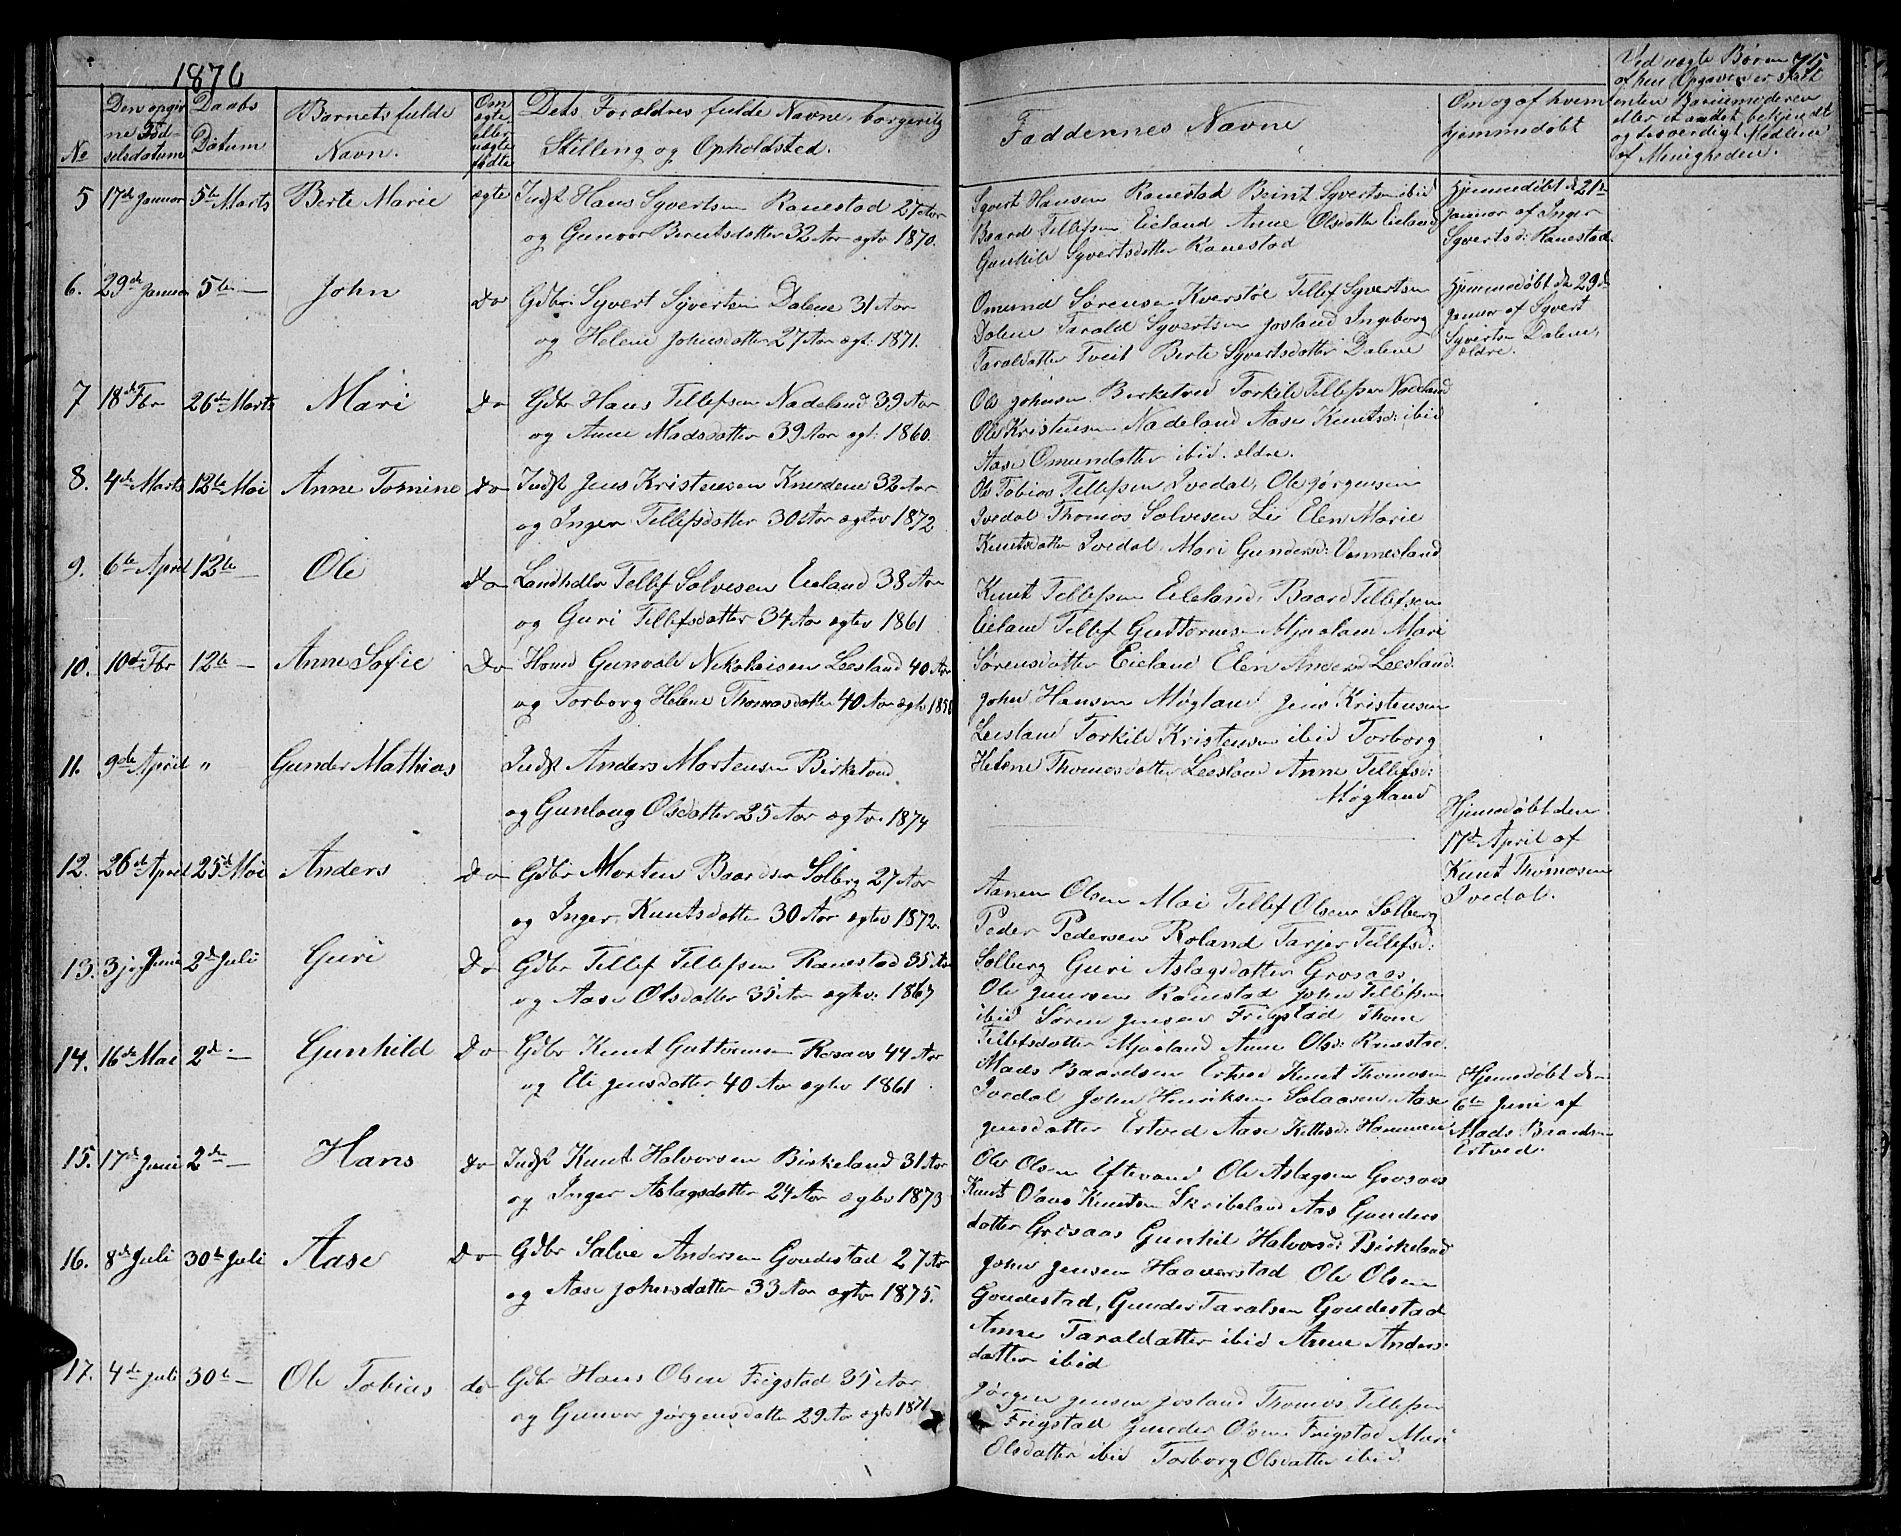 1876
75
No
Den opgivne Fødselsdatum
Daabs Datum
Barnets fulde Navn.
Om ægte eller uægte fødte
Dets Foraldres fulde Navne, borgerlig Stilling og Opholdsted.
Faddernes Navne
Om og af hvem hjemmedøbt
Ved uægte Børn af hen Opgaven er skeet enten Barnemoderen eller et andet bekjendt og troværdigt Medlem af Menigheden.
5 17de Januar 5te Marts Berte Marie ægte Indst Hans Syvertsen Ranestad 27 Aar
og Gunvor Berntsdatter 32 Aar ægtv 1870.
Syvert Hansen Ranestad Beint Syvertsen ibid
Baard Tellefsen Eieland Anne Olsdatter Eieland
Gunhild Syvertsdatter Ranestad
Hjemmedøbt d 21de
Januar af Inger
Syvertsd: Ranestad.
6. 29de Januar 5te — John Do Gdbr: Syvert Syvertsen Dalene 31 Aar
og Helene Johnsdatter 27 Aar ægt: 1871.
Omund Sørensen Kverstøl Tellef Syvertsen
Dalene Tarald Syvertsen Josland Ingeborg
Taraldatter Tveit Berte Syvertsdatter Dalene
Hjemmedøbt den 29de
Januar af Syvert
Syvertsen Dalene,
ældre.
7 18de Fbr 26de Marts Mari Do Gdbr Hans Tellefsen Nadeland 39 Aar
og Anne Madsdatter 39 Aar ægt: 1860.
Ole Johnsen Birketved Torkild Tellefsen Nadeland
Ole Kristensen Nadeland Aase Knutsd: ibid
Aase Omundatter ibid. ældre.
8. 4de Marts 12te Mai Anne Tomine Do Indst Jens Kristensen Knudene 32 Aar
og Inger Tellefsdatter 30 Aar ægtev 1872
Ole Tobias Tellefsen Ivedal, Ole Jørgensen
Ivedal Thomas Salvesen Lie Elen Marie
Knutsdatter Ivedal Mari Gundersd: Vennesland
9. 6te April 12te — Ole Do Landhdlr Tellef Salvesen Eieland 38 Aar
og Guri Tellefsdatter 34 Aar ægtev 1861
Knut Tellefsen Eieland, Baard Tellefsen
Eieland Tellef Guttormsen Mjaaland Mari
Sørensdatter Eieland Elen Andersd Leesland
10. 10de Fbr 12te — Anne Sofie Do Hmd Gunvald Nikolaisen Leesland 40 Aar
og Torborg Helene Thomasdatter 40 Aar ægtv
John Hansen Møgland Jens Kristensen
Leesland Torkild Kristensen ibid Torborg
Helene Thomasdatter Leesland Anne Tellefsd:
Møgland
11. 9de April " Gunder Mathias Indst Anders Mortensen Birketved
og Gunlaug Olsdatter 25 Aar ægtv. 1874
Hjemedøbt den
17de April af
Knut Thomasen
Ivedal.
12. 26de April 25de Mai Anders Do Gdbr Morten Baardsen Solberg 27 Aar
og Inger Knutsdatter 30 Aar ægtev 1872.
Aanen Olsen Moi Tellef Olsen Solberg
Peder Pedersen Roland Tarjer Tellefsd:
Solberg Guri Aslagsdatter Grosaas,
13. 3je Juni 2de Juli Guri Do Gdbr Tellef Tellefsen Ranestad 35 Aar
og Aase Olsdatter 35 Aar ægtev: 1867
Ole Ranestad John Tellefsen
ibid Søren Jensen Frigstad Thone
Tellefsdatter Mjaaland Anne Olsd: Ranestad.
14. 16de Mai 2de — Gunhild Do Gdbr Knut Guttormsen Rosaas 44 Aar
og Eli Jensdatter 40 Aar ægtev 1861
Mads Baardsen Ertved Knut Thomasen
Ivedal John Henriksen Solaasen Aase
Jensdatter Ertved Aase Hammen
Hjemedøbt den
6te Juni af
Mads Baardsen
Ertved.
15. 17de Juni 2de — Hans Do Indst Knut Halvorsen Birkeland 31 Aar
og Inger Aslagsdatter 24 Aar ægtev 1873
Ole Olsen Eftevand Ole Aslagsen Grosaas
Knut Olaus Knutsen Skribeland Aas Gunders
datter Grosaas Gunhil Halvorsd: Birkeland
16. 8de Juli 30te Juli Aase Do Gdbr Salve Andersen Goudestad 27 Aar
og Aase Johnsdatter 33 Aar ægtv 1875.
John Jensen Haaverstad Ole Olsen
Goudestad, Gunder Taralsen Goudestad
Anne Taraldatter ibid Anne Anders-
datter ibid
17. 4de Juli 30te — Ole Tobias do Gdbr Hans Olsen Frigstad 35 Aar
og Gunvor Jørgensdatter 29 Aar ægtv 1871
Jørgen Jensen Josland Thomas Tellefsen
Frigstad Gunder Olsen Frigstad Mari
Olsdatter ibid Torborg Olsdatter ibid.